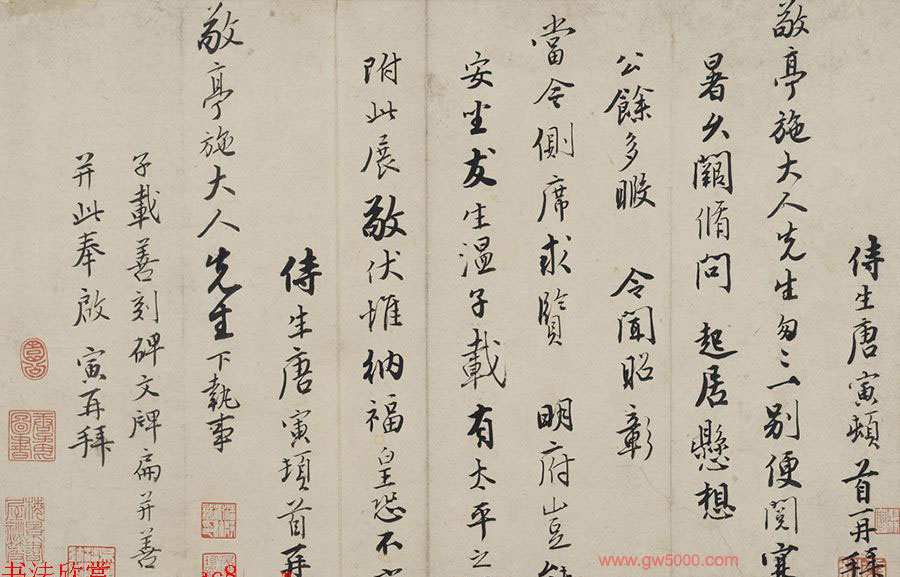 侍生唐寅頓首再拜
敬亭施大人先生匆〻一別便閱寒
暑久闊脩問 起居懸想
公餘多暇 令聞昭彰
當今側席求賢 明府豈能
安坐友生溫子載有太平之
附此展敬伏惟納福皇恐不
侍生唐寅頓首再
敬亭施大人先生下執事
子載善刻碑文牌扁并善
并此奉啟 寅再拜
www.gw5000.com
书法欣赏